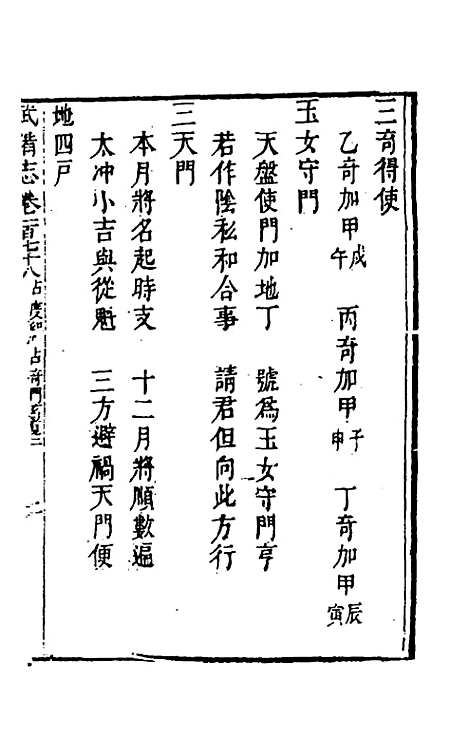 三奇得使
乙奇加甲戌午　丙奇加甲子申　丁奇加甲辰寅
玉女守門
天盤使門加地丁　號為玉女守門亨
若作陰私和合事　請君但向此方行
三天門
本月將名起時支　十二月將順數遍
太冲小吉與從魁　三方避禍天門便
地四戶
武備志卷一百七十八　占度　占奇門